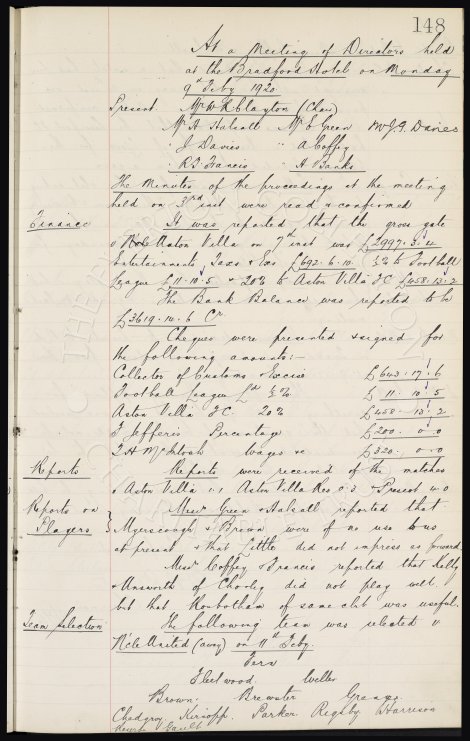 148
At a Meeting of Directors held
at the Bradford Hotel on Monday
9th Feby 1920
Present Mr W R Clayton (Chair)
Mr H Halsall Mr E Green Mr J G Davies
J Davies " A Coffey
R T Francis " H Banks
The Minutes of the proceedings at the meeting
held on 3rd inst were read & confirmed
Finance It was reported that the gross gate
v Aston Villa on 7th inst was £2997.3.4
Entertainments Taxes & Exs £692.6.10 ½% to Football
League £11.10.5 & 20% to Aston Villa FC £458.13.2
The Bank Balance was reported to be
£3619.14.6 Cr
Cheques were presented & signed for
the following amounts:-
Collector of Customs & Excise £643.17.6
Football League Ltd ½% £11.10.5
Aston Villa FC 20% £458.13.2
T Jefferis Percentage £200.0.0
T H McIntosh Wages &c £320.0.0
Reports Reports were received of the matches
v Aston Villa 1.1 Aston Villa Res 0.3 & Prescot 4.0
Reports on Players Messrs Green & Halsall reported that
Myerscough & Brown were of no use to us
at present & that Little did not impress as forward
Messrs Coffey & Francis reported that Kelly
& Ainsworth of Chorley did not play well
but that Rowbotham of same club was useful.
Team Selection The following team was selected v
Ncle United (away) on 11th Feby.
Fern
Fleetwood. Weller
Brown. Brewster Grenyer.
Chedgzoy Kirsopp. Parker Rigsby Harrison
Reserve Gault